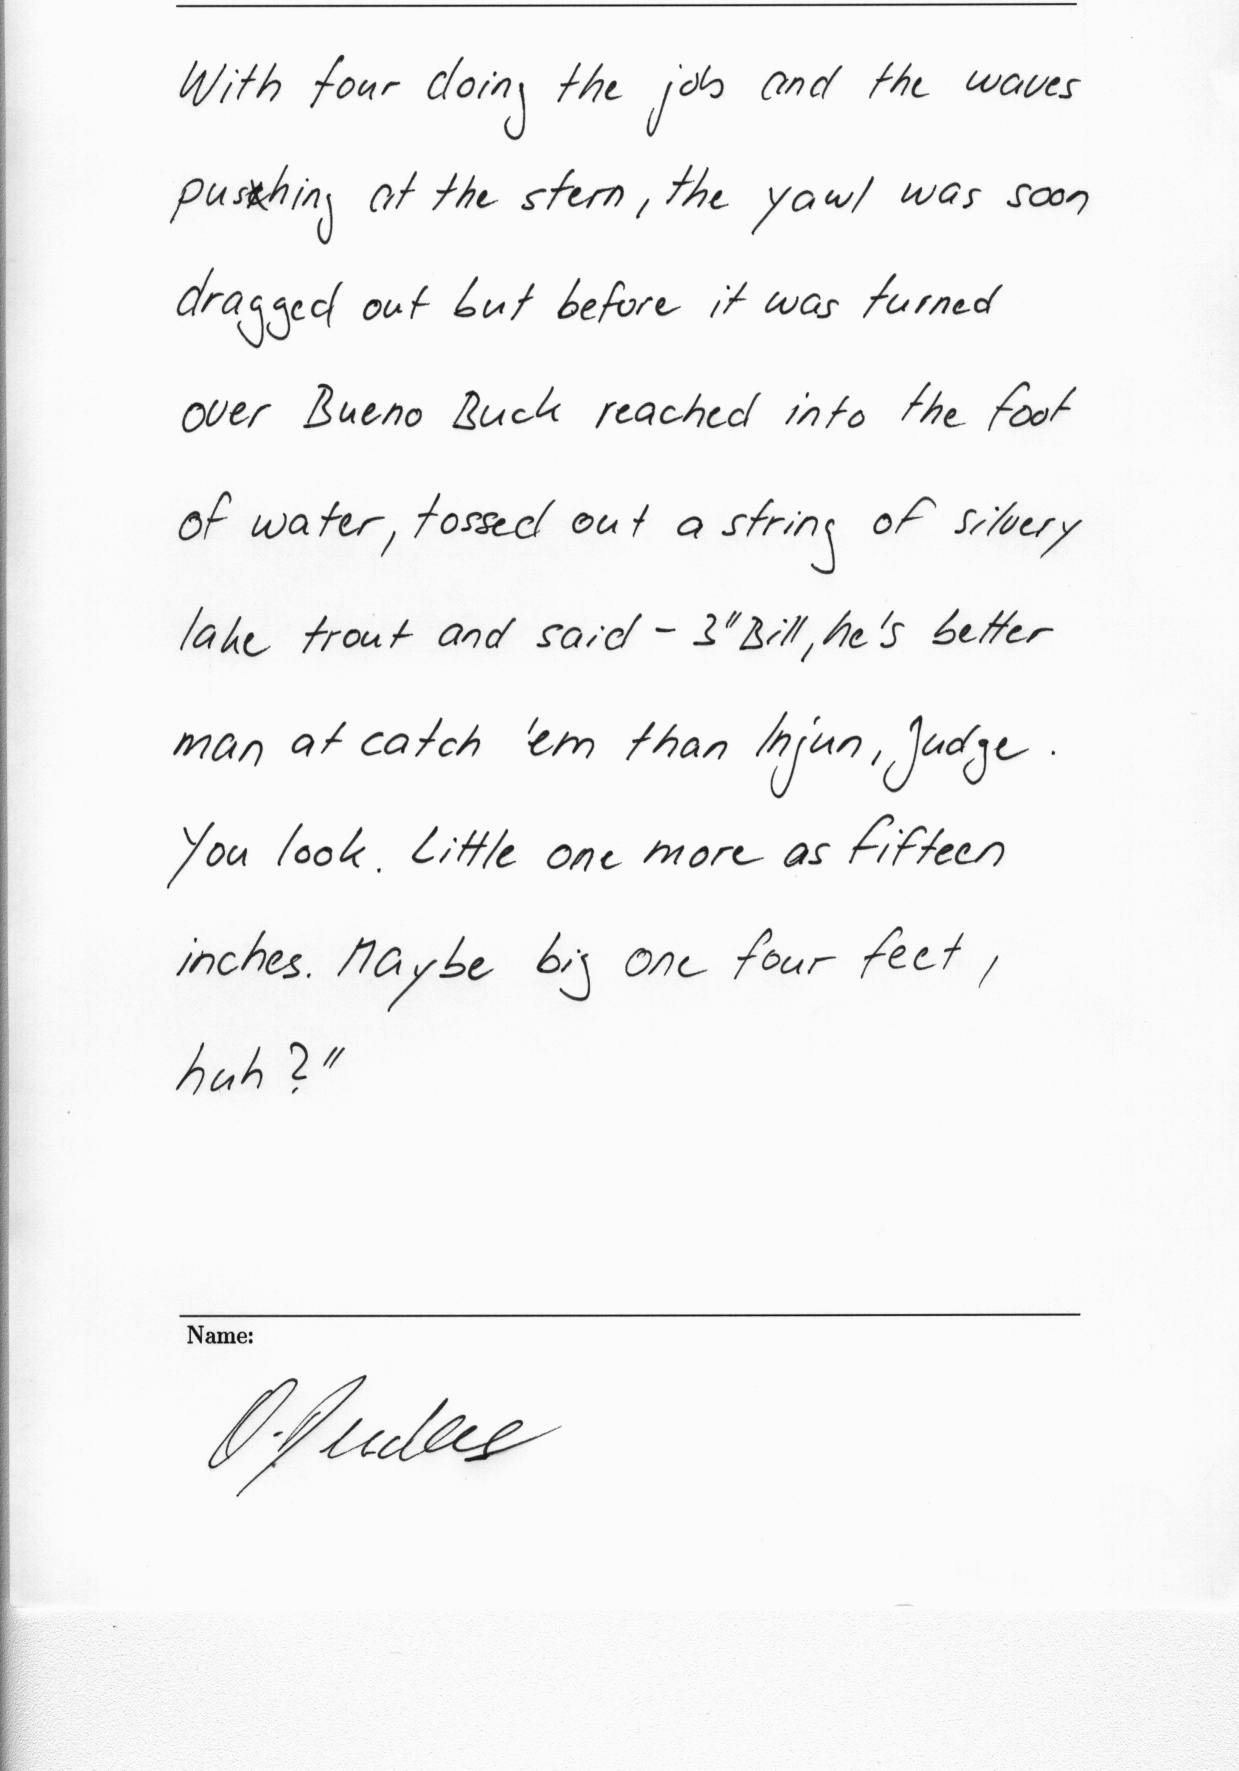 With four doing the job and the waves
pushing at the stern, the yawl was soon
dragged out but before it was turned
over Bueno Buck reached into the foot
of water, tossed out a string of silvery
lake trout and said - 3"Bill, he's better
man at catch 'em than Injun, Judge.
You look. Little one more as fifteen
inches. Maybe big one four feet,
huh?"
Name: